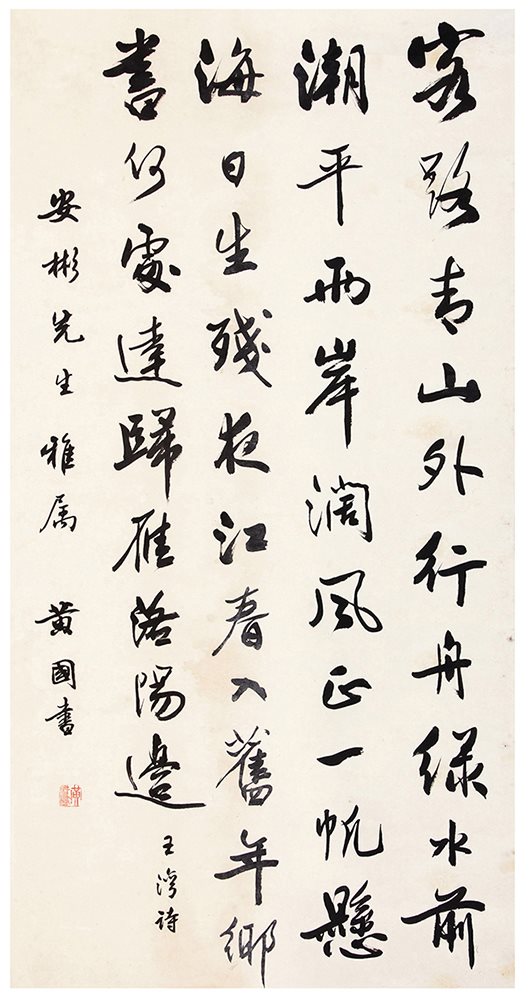 客路青山外行舟绿水前
潮平两岸阔风正一帆悬
海日生残夜江春入舊年鄉
書何處達歸雁洛陽邊
王灣诗
安彬先生雅属 黄國书